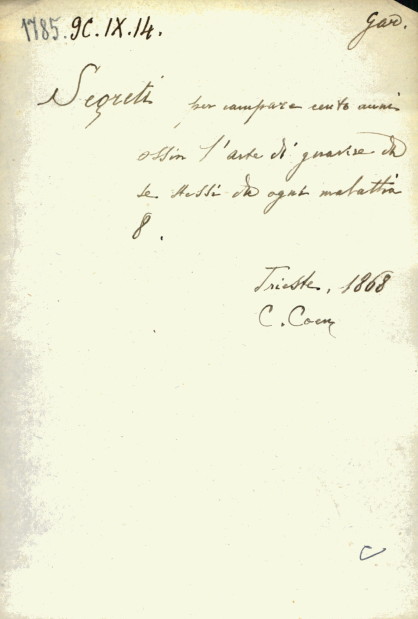 1785. 9C.IX.14. Gar.
Segreti per campare cento anni
ossia l'arte di guarire da
se stessi da ogni malattia
8.
Trieste, 1868
C. Coen
C